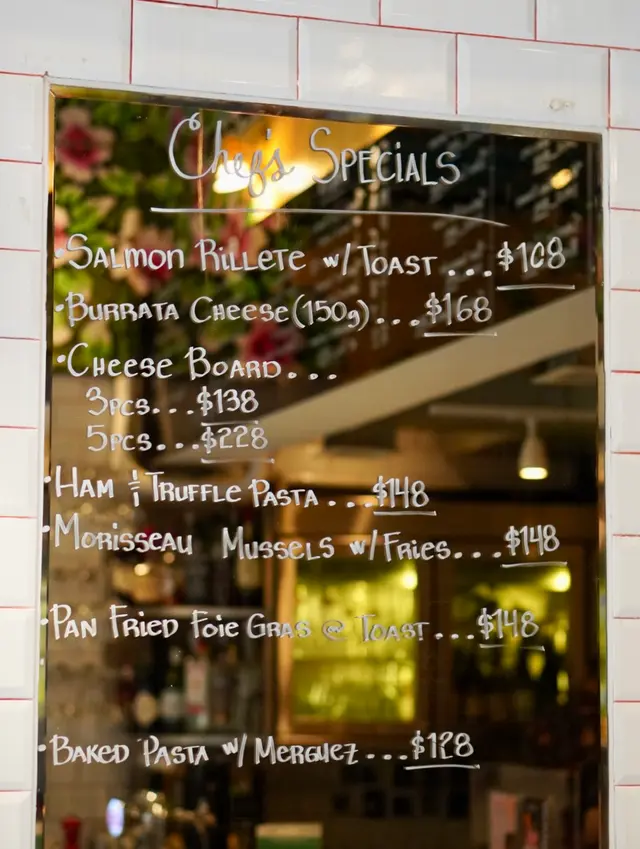 Chef's Specials
·Salmon Rillete w/Toast...$108
·Burrata Cheese (150g)...$168
·Cheese Board...
3pcs...$138
5pcs...$228
·Ham & Truffle Pasta...$148
·Morisseau Mussels w/Fries...$148
·Pan Fried Foie Gras @ Toast...$148
·Baked Pasta w/ Merguez...$128